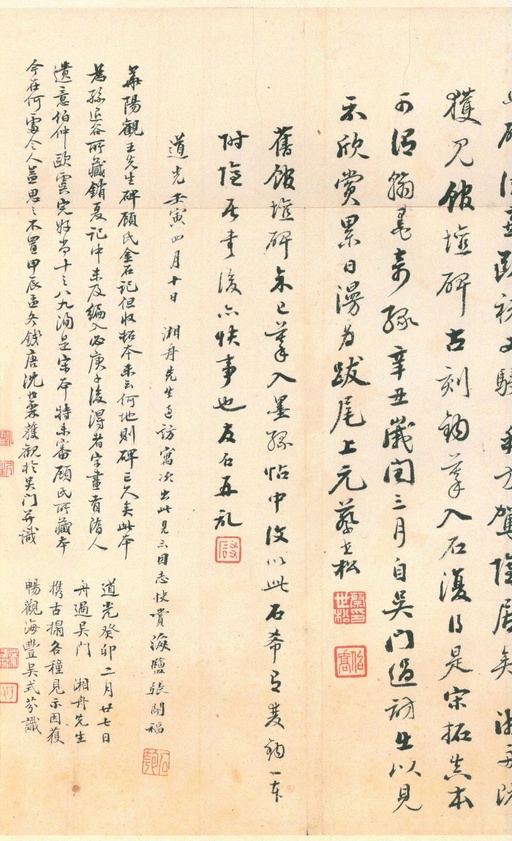 獲見館壇碑古刻鉤摹入石復得是宋拓真本
可謂翰墨奇緣辛丑歲閏三月自吳門過訪出以見
示欣賞累日漫為跋尾上元蔡世松
舊館壇碑余已摹入墨緣帖中後以此石希有爰鉤一本
附隱居書後亦快事也友石再記
道光壬寅四月十日 湘舟先生過訪寓次出此見示因志快賞海鹽張開福
華陽觀王先生碑顧氏金石記但收拓本未云何地則碑已久矣此本
為孫退谷所藏銷夏記中未及編入必庚子後得者字畫有隋人
遺意伯仲歐虞完好者十之八九洵是宋本特未審顧氏所藏本
今在何處令人益思之不置甲辰孟冬錢唐沈 獲觀於吳門并識
道光癸卯二月廿七日
舟過吳門 湘舟先生
攜古搨各種見示因獲
暢觀海豐吳式芬識